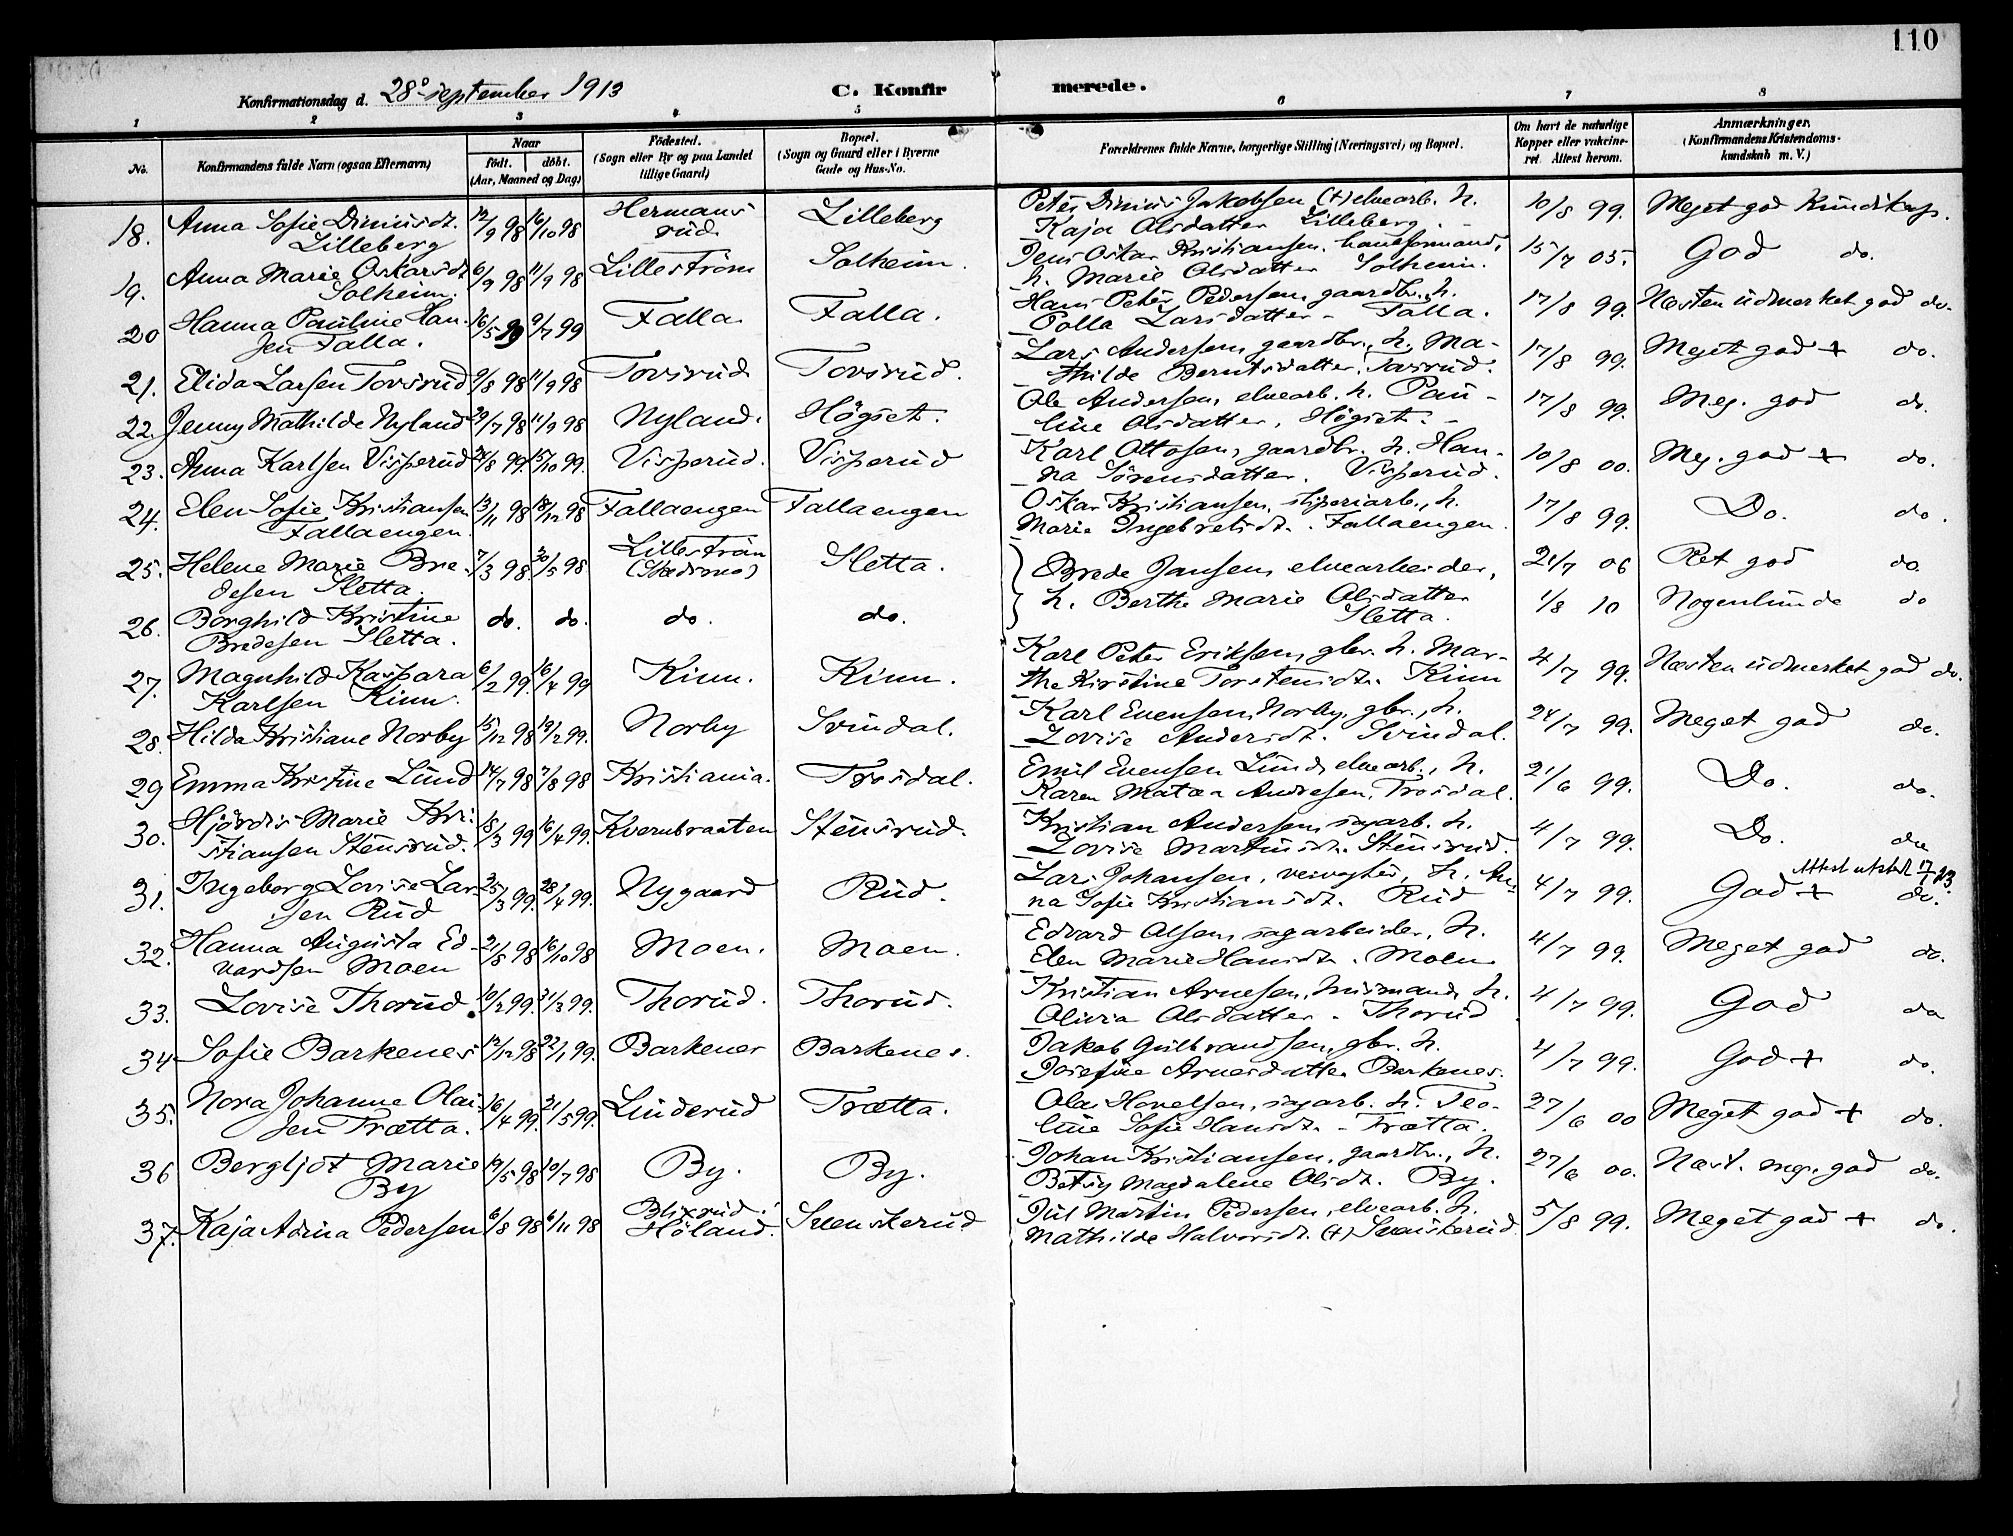 110
Konfirmationsdag d. 28de september 1913 C. Konfirmerede.
1 2 3 4 5 6 7 8
No. Konfirmandens fulde Navn (ogsaa Efternavn) Naar født. døbt. (Aar, Maaned og Dag) Fødested. (Sogn eller By og paa Landet tillige Gaard) Bopæl. (Sogn og Gaard eller i Byerne Gade og Hus-No. Forældrenes fulde Navne, borgerlige Stilling (Næringsvei) og Bopæl. Om havt de naturlige Kopper eller vakcineret. Attest herom. Anmærkninger. (Konfirmandens Kristendomskundskab m. V.)
18. Anna Sofie Dinnisdt. 12/9 98 16/10 98 Hermans Lilleberg Peter Dinius Jakobsen (+) elvearb. h. 10/8 99. Meget god Kundskap.
Lilleberg rud. Kaja Olsdatter Lilleberg.
19. Anna Marie Oskarsdt 6/9 98 11/9 98 Lillestrøm Solheim. Jens Oskar Kristiansen, h. 15/7 05. God do.
Solheim. h. Marie Olsdatter Solheim.
20 Hanna Pauline Han- 16/5 99 9/7 99 Falla. Falla. Hans Peter Pedersen, gaardbr., h. 17/8 99. Næsten udmerket god do.
sen Falla. Polla Larsdatter - Falla.
21. Elida Larsen Torsrud 9/8 98 11/9 98 Torsrud Torsrud. Lars Andersen, gaardbr., h. Ma- 17/8 99. Meget god + do.
thilde Berntsdatter. Torsrud.
22. Jenny Mathilde Nyland 29/7 98 11/9 98 Nyland. Högset. Ole Andersen, elvearb. h. Pau- 17/8 99. Meg. god do.
line Olsdatter, Högset.
23. Anna Karlsen Visperud 24/8 99. 15/10 99. Visperud. Visperud Karl Ottosen, gaardbr. h. Han- 10/8 00. Meg. god + do.
na Sörensdatter. Visperud.
24. Elen Sofie Kristiansen 13/11 98 18/12 98 Fallaengen Fallaengen Oskar Kristiansen, sliperiarb., h. 17/8 99. Do. do.
Fallaengen. Marie Ingebretsdt. Fallaengen.
25. Helene Marie Bre- 7/3 98. 30/5 98 Lillestrøm Sletta. Brede Jansen, elvearbeider, 21/7 06 Ret god do.
desen Sletta. (Skedsmo) h. Berthe Marie Olsdatter
26. Borghild Kristine do. do. do. do. Sletta. 1/8 10 Nogenlunde do
Bredesen Sletta.
27. Magnhild Kaspara 6/2 99. 16/4 99 Kinn. Kinn. Karl Peter Eriksen, gbr. h. Mar- 4/7 99. Næsten udmerket god do.
Karlsen Kinn. the Kirstine Torstensdt. Kinn
28. Hilda Kristiane Norby 15/12 98 19/2 99. Norby Svindal. Karl Evensen Norby, gbr., h. 24/7 99. Meget god do.
Lovise Andersdt. Svindal.
29 Emma Kristine Lund 14/7 98 7/8 98 Kristiania. Trosdal. Emil Evensen Lund, elvearb., h. 21/6 99. Do. do.
Karen Matea Andresen, Trosdal.
30. Hjördis Marie Kri- 18/3 99 16/4 99. Kvernbraaten Stensrud. Kristian Andersen, sagarb. h. 4/7 99. Do. do
stiansen Stensrud. Lovise Martinsdt. Stensrud.
31. Ingeborg Lovise Lar- 25/3 99. 28/4 99. Nygaard Rud. Lars Johansen, veivogter, h. An- 4/7 99. God + do.
sen Rud na Sofie Kristiansdt. Rud Attest utstedt
32. Hanna Augusta Ed- 21/8 98 16/10 98 Moen. Moen. Edvard Olsen, sagarbeider, h. 4/7 99. Meget god do.
vardsen Moen Elen Marie Hansdt. Moen
33. Lovise Thorud. 10/2 99. 3/3 99. Thorud. Thorud. Kristian Arnesen, husmand, h. 4/7 99. God do
Olivia Olsdatter - Thorud
34 Sofie Barkenes 12/12 98 22/1 99. Barkenes Barkenes. Jakob Gulbrandsen, gbr. h. 4/7 99. God + do.
Josefine Arnesdatter Barkenes.
35. Nora Johanne Olai- 16/4 99. 21/5 99. Linderud Trætta. Olai Havelsen, sagarb. h. Teo- 27/6 00 Meget god + do.
sen Trætta. line Sofie Hansdt. - Trætta.
36 Bergljot Marie 19/5 98 10/7 98 By. By. Johan Kristiansen, gaardbr., h. 27/6 00. Næst. meg. god do.
By Betsy Magdalene Olsdt. By.
37. Kaja Adina Pedersen 6/8 98 6/11 98 Blixrud i Svenskerud Jul Martin Pedersen, elvearb. h. 5/8 99. Meget god + do.
Höland. Mathilde Halvorsdt. (+) Svenskerud.